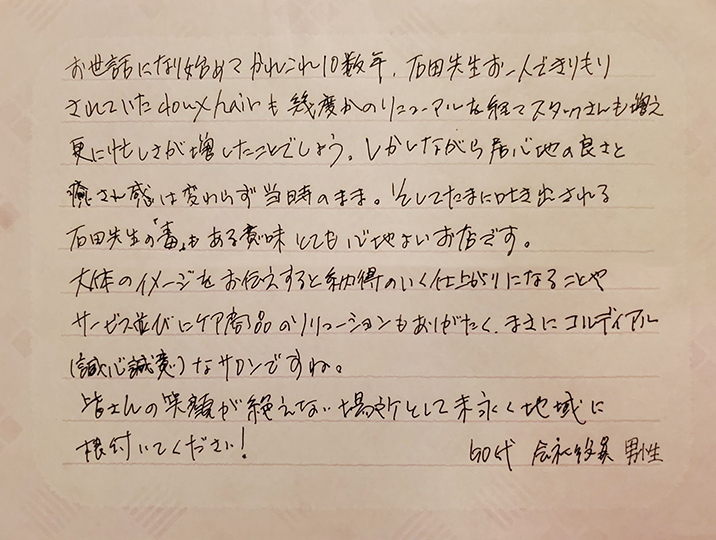 お世話になり始めてかれこれ10数年、石田先生お一人できりもり
されていたdoux hairも幾度かのリニューアルを経てスタッフさんも増え
更に忙しさが増したことでしょう。しかしながら居心地の良さと
癒さ感は変わらず当時のまま。そしてたまに吐き出される
石田先生の「毒」もある意味とても心地よいお店です。
大体のイメージをお伝えすると納得のいく仕上がりになることや
サービス並びにケア商品のソリューションもありがたく、まさにコルディアル
(誠心誠意)なサロンですね。
皆さんの笑顔が絶えない場所として末永く地域に
根付いてください!
60代 会社役員 男性